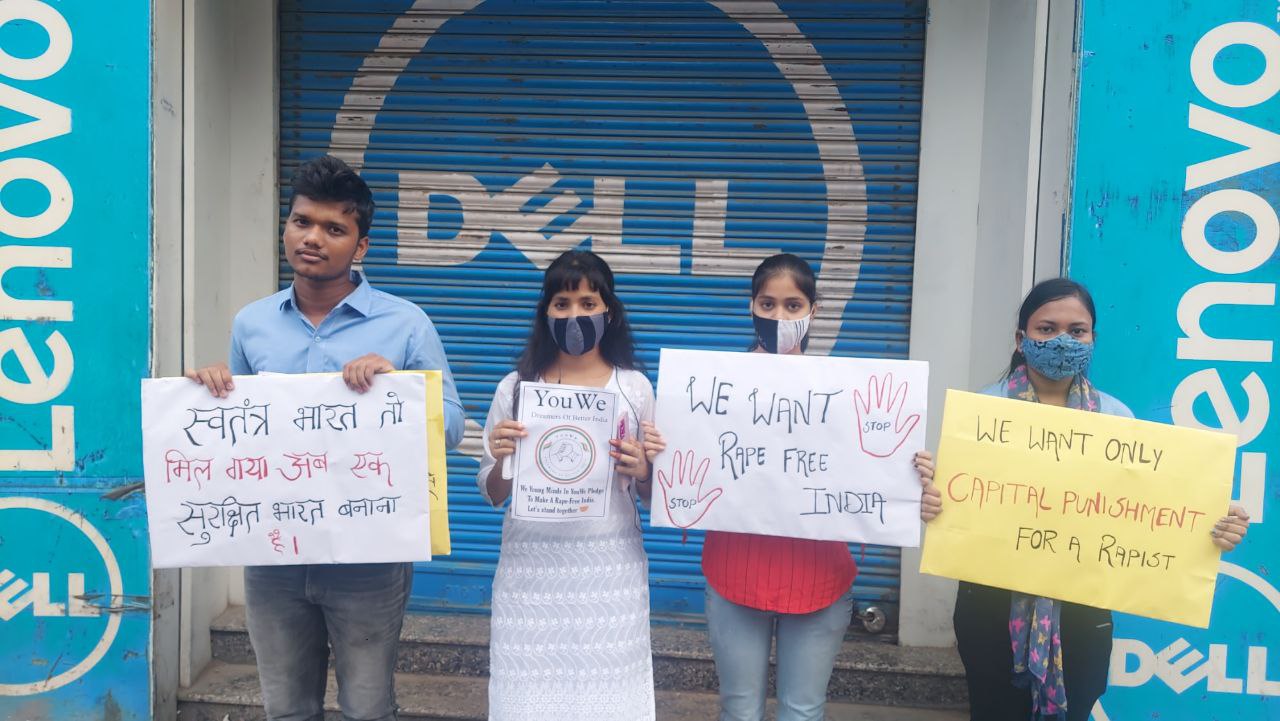 Lenovo
DELL
DELL
स्वतंत्र भारत तो
मिल गया अब एक
सुरक्षित भारत बनाना
है।
YouWe
Dreamers Of Better India
We Young Minds In YouWe Pledge
To Make A Rape-Free India.
Let's stand together
WE WANT
RAPE FREE
INDIA
STOP
STOP
WE WANT ONLY
CAPITAL PUNISHMENT
FOR A RAPIST
Lenovo
DELL